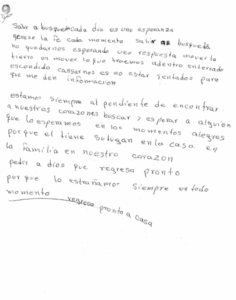 Salir a busqueda cada dia es una esperanza
 la fe cada momento salir a busqueda
no quedarnos esperando una respuesta mover la
tierra es mover lo que tenemos adentro enterrado
escondido cansarnos es no estar isolados para
que me den informacion
estamos siempre al pendiente de encontrar
a nuestros corazones buscar y esperar a alguien
que lo esperamos en las momentos alegres
porque el tiene su lugar en la casa en
la familia en nuestro corazon
pedir a dios que regresa pronto
por que lo extrañamos siempre en todo
momento regresa pronto a casa